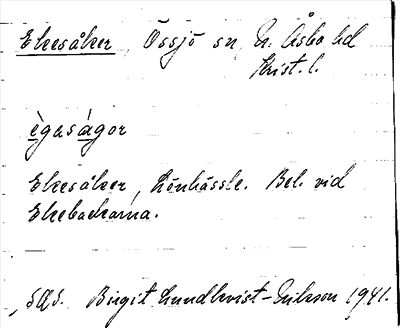 Ekesåker, Össjö sn, N. Åsbo hd
Krist. l.
ègasàgor
Ekesåker, Lönhässle. Bel. vid
Ekebackarna.
SOS. Birgit Lundkvist-Eriksson 1941.